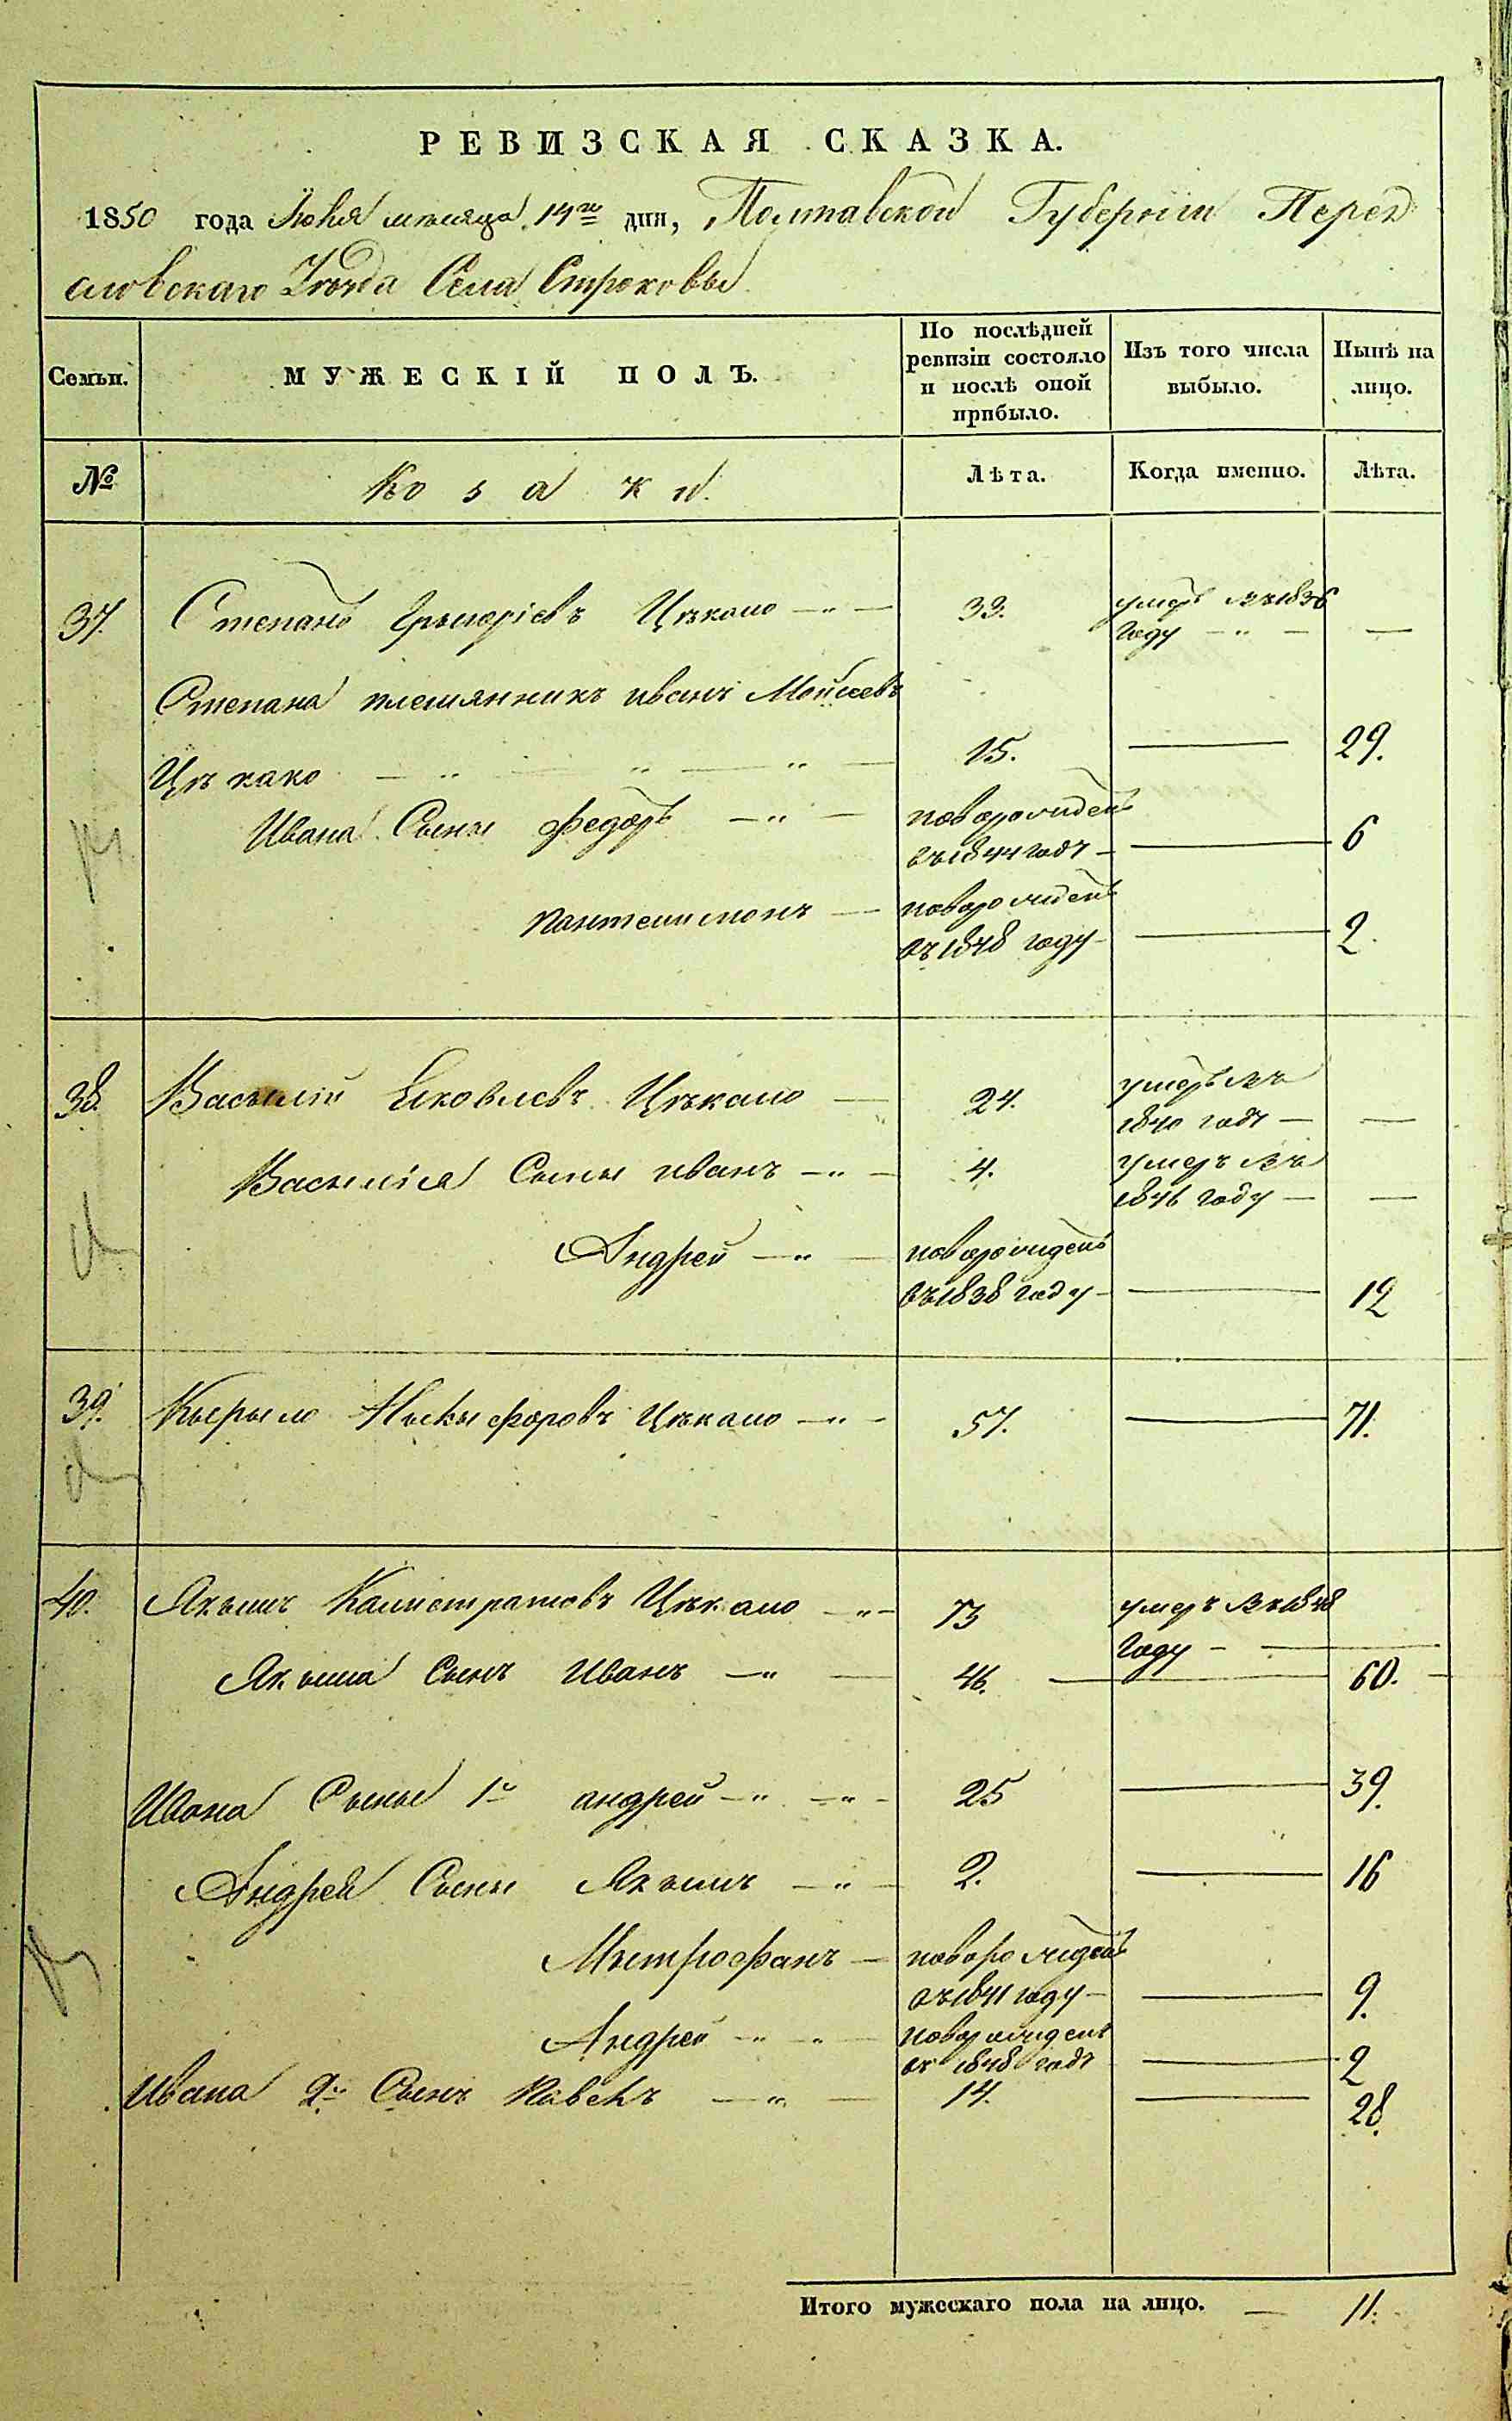 РЕВИЗСКАЯ СКАЗКА.
1850 года Июня месяца 14го дня, Полтавской Губернiи Перея
словскаго Уѣзда Села Строковы
Семьи.
МУЖЕСКІЙ ПОЛЪ.
По послѣдней ревизіи состояло и послѣ оной прибыло.
Изъ того числа выбыло.
Нынѣ на лицо.
№
Козаки.
Лѣта.
Когда именно.
Лѣта.
37. Степанъ Грыгоріевъ Цѣкало — 33. умеръ въ 1836
году — —
Степана племянникъ иванъ Мойсеевъ
Цѣкало — 15. — 29.
Ивана Сыны Федоръ — новорожденъ
въ 1844 годѣ — 6
Пантелимонъ — новорожденъ
въ 1848 году — 2.
38. Васылій Яковлевъ Цѣкало — 24. умеръ въ
1840 годѣ — —
Васылія Сыны иванъ — 4. умеръ въ
1846 году — —
Андрей — новорожденъ
въ 1838 году — 12
39. Кырыло Ныкыфоровъ Цѣкало — 57. — 71.
40. Якымъ Калистратовъ Цѣкало — 73 умеръ въ 1848
году —
Якыма Сынъ Иванъ — 46. — 60.
Ивана Сыны 1й андрей — 25 — 39.
Андрея Сыны Якымъ — 2. — 16
Мытрофанъ — новорожденъ
въ 1841 году — 9.
Андрей — новорожденъ
въ 1848 годѣ — 2
Ивана 2й Сынъ Павелъ — 14. — 28.
Итого мужескаго пола на лицо. — 11.